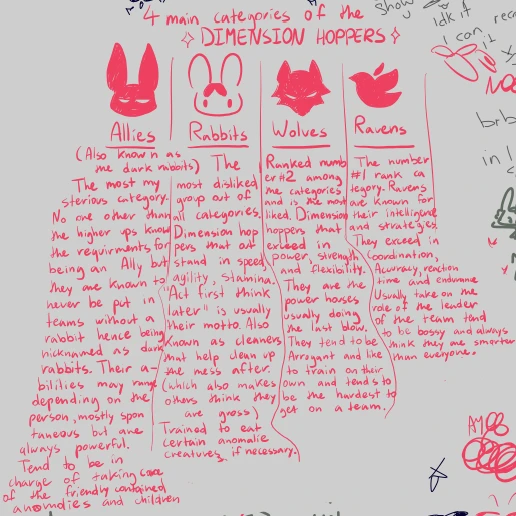 4 main categories of the
DIMENSION HOPPERS
Allies
(Also known as
the dark rabbits)
The most my
sterious category.
No one other than
the higher ups know
the requirments for
being an Ally but
they are known to
never be put in
teams without a
rabbit hence being
nicknamed as dark
rabbits. Their a-
bilities may range
depending on the
person, mostly spon
taneous but are
always powerful.
Tend to be in
charge of taking care
of the friendly contained
anomdies and children
Rabbits
The
most disliked
group out of
all categories.
Dimension hop
pers that out
stand in speed,
agility, stamina.
"Act first think
later" is usually
their motto. Also
Known as cleaners
that help clean up
the mess after.
(which also makes
others think they
are gross)
Trained to eat
certain anomalie
creatures, if necessary.
Wolves
Ranked numb
er #2 among
the categories
and is the most
liked. Dimension
hoppers that
exceed in
power, strength
and flexibility.
They are the
power houses
usually doing
the last blow.
They tend to be
Arrogant and like
to train on their
own and tends to
be the hardest to
get on a team.
Ravens
The number
#1 rank ca
tegory. Ravens
are known for
their intelligence
and strategies.
They exceed in
Coordination,
Accuracy, reaction
time and endurance
Usually take on the
role of the leader
of the team tend
to be bossy and always
think they are smarter
than everyone.
Show
u
Idk if
I can
it
brb
in l